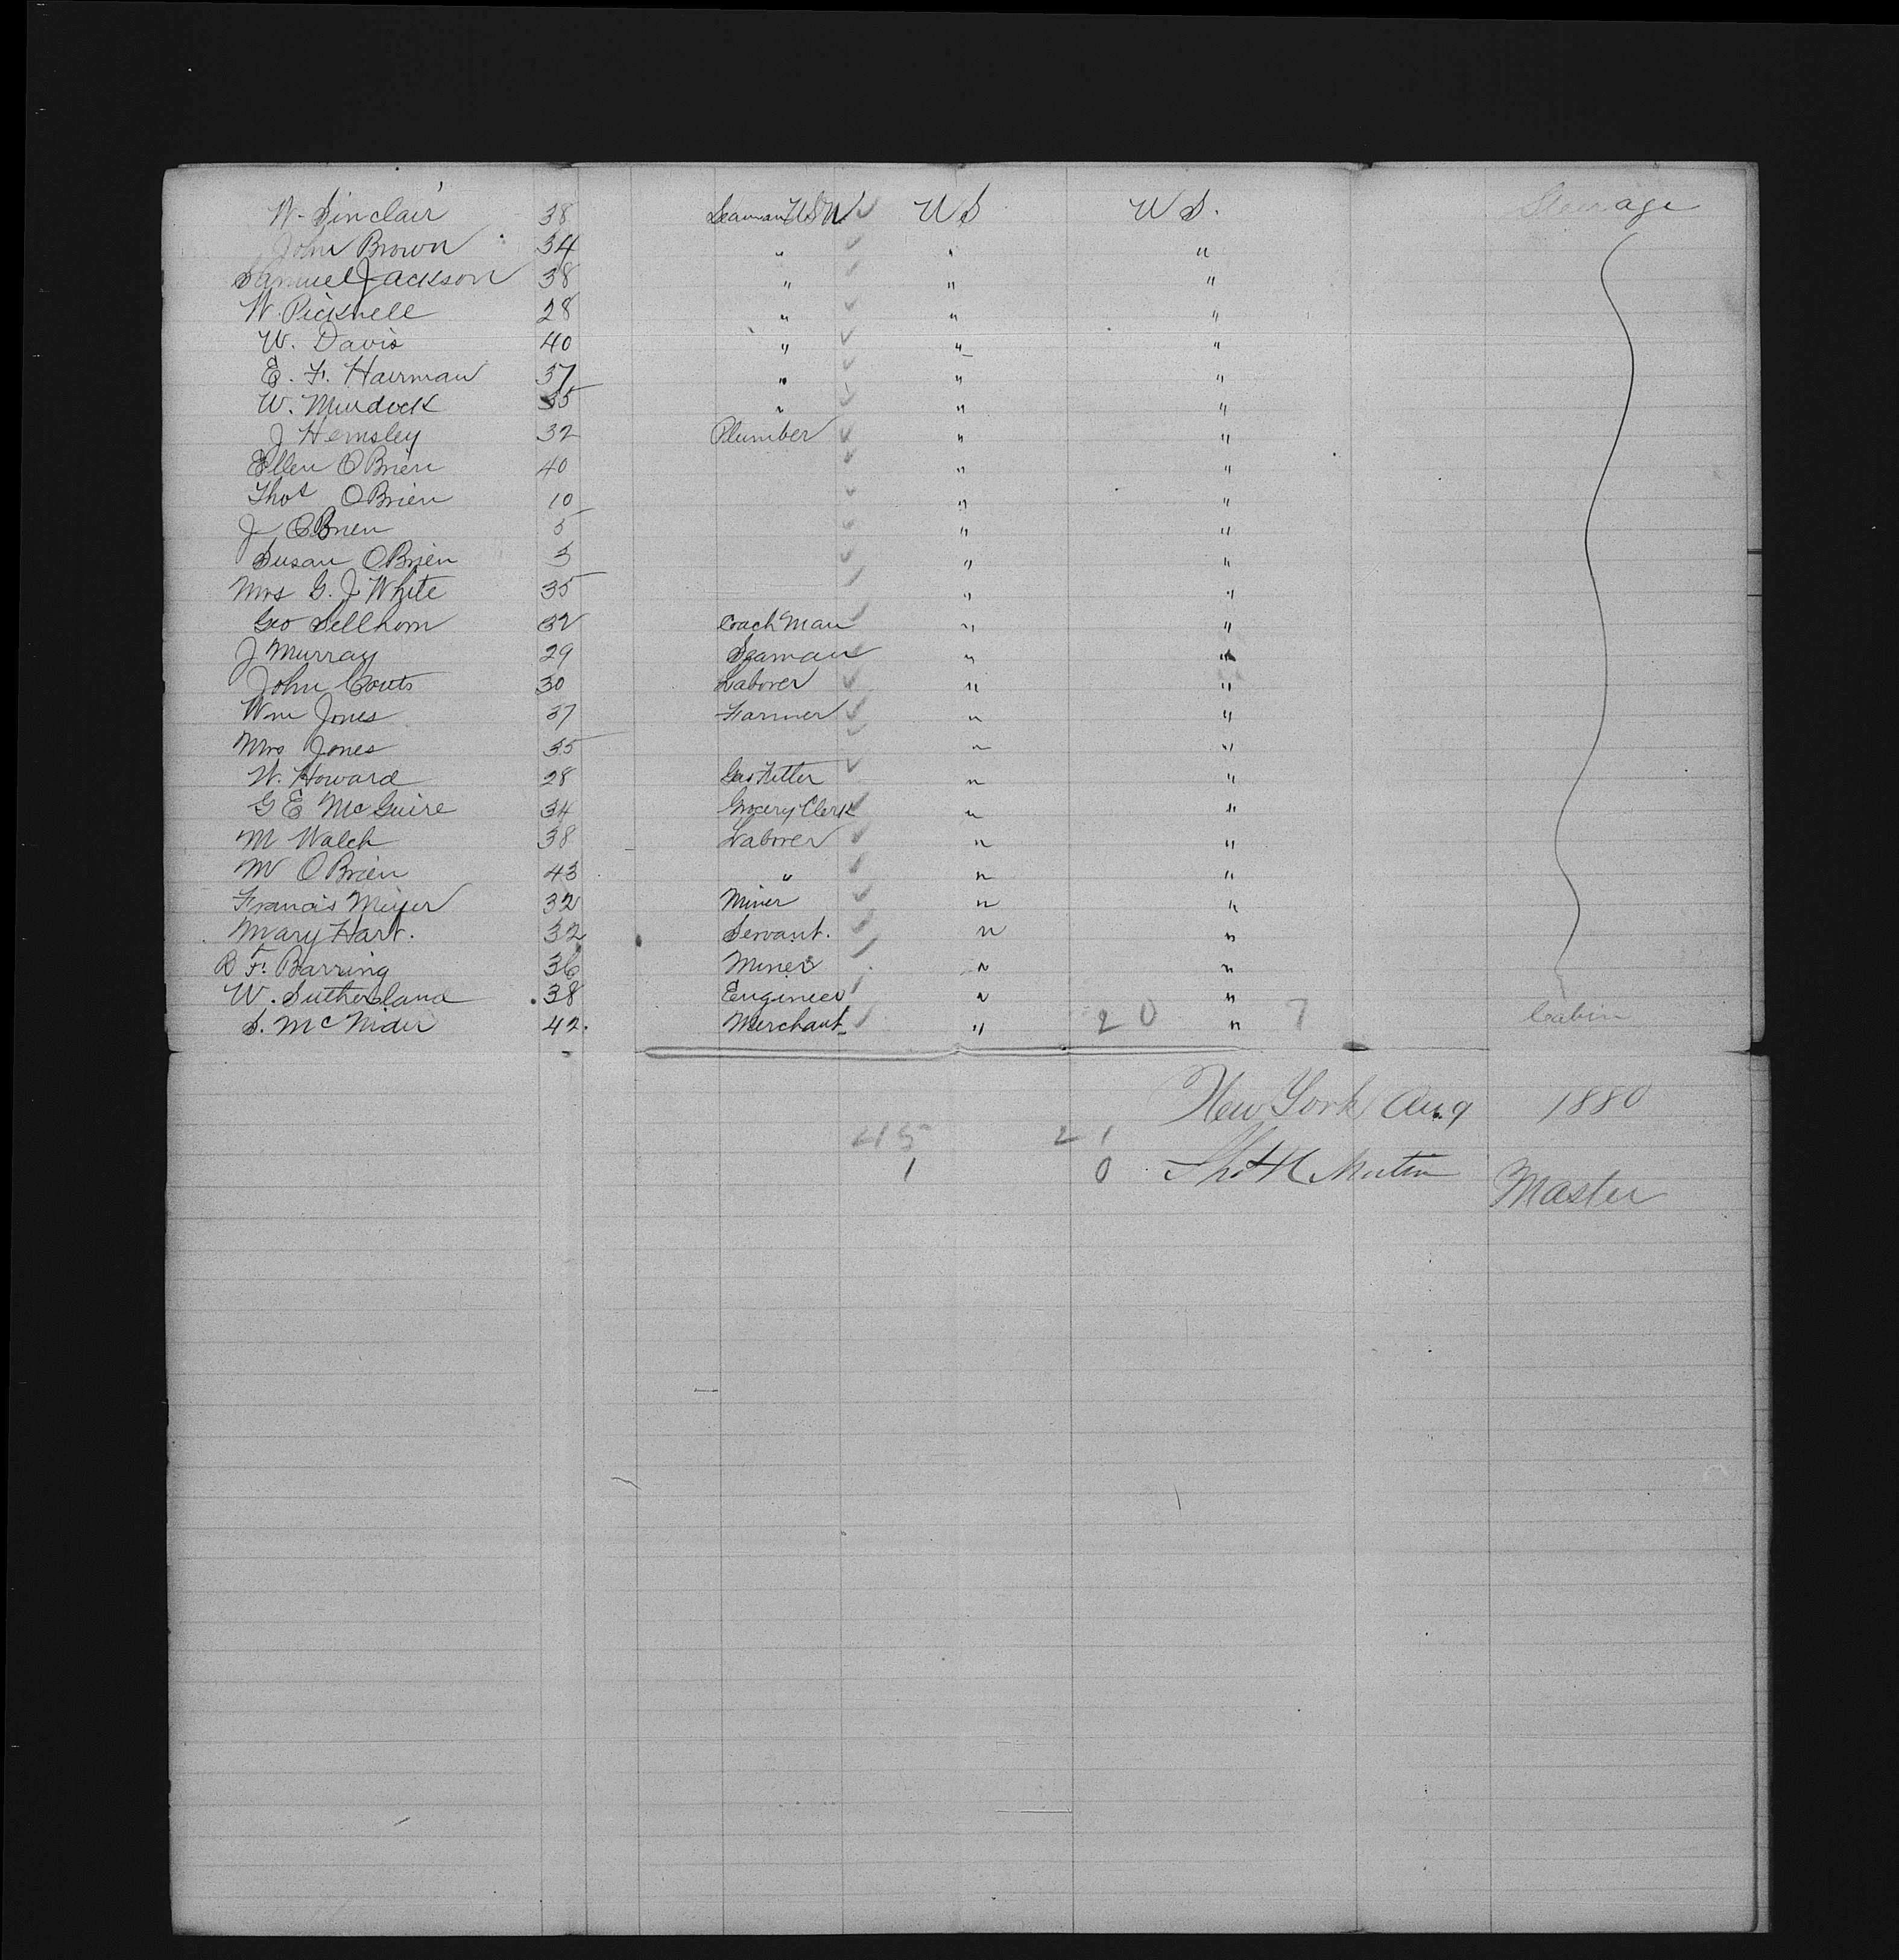 W. Sinclair 38 Seaman USN U S U S. Steerage
John Brown 34 " " "
Samuel Jackson 38 " " "
W. Picknell 28 " " "
W. Davis 40 " " "
E. F. Hairman 37 " " "
W. Murdock 35 " " "
J Hemsley 32 Plumber " "
Ellen OBrien 40 " "
Thos OBrien 10 " "
J OBrien 5 " "
Susan OBrien 3 " "
Mrs G. J. White 35 " "
Geo Sellhorn 32 Coach Man " "
J Murray 29 Seaman " "
John Couts 30 Laborer " "
Wm Jones 37 Farmer " "
Mrs Jones 35 " "
W. Howard 28 Gas Fitter " "
G E McGuire 34 Grocery Clerk " "
M Walch 38 Laborer " "
M OBrien 43 " " "
Francis Meyer 32 Miner " "
Mary Hart. 32 Servant. " "
R F. Barring 36 Miner " "
W. Sutherland 38 Engineer " "
S. McNider 42. Merchant " 20 " 7 Cabin
New York Aug 1880
45 21
1 0 Thos Morton Master